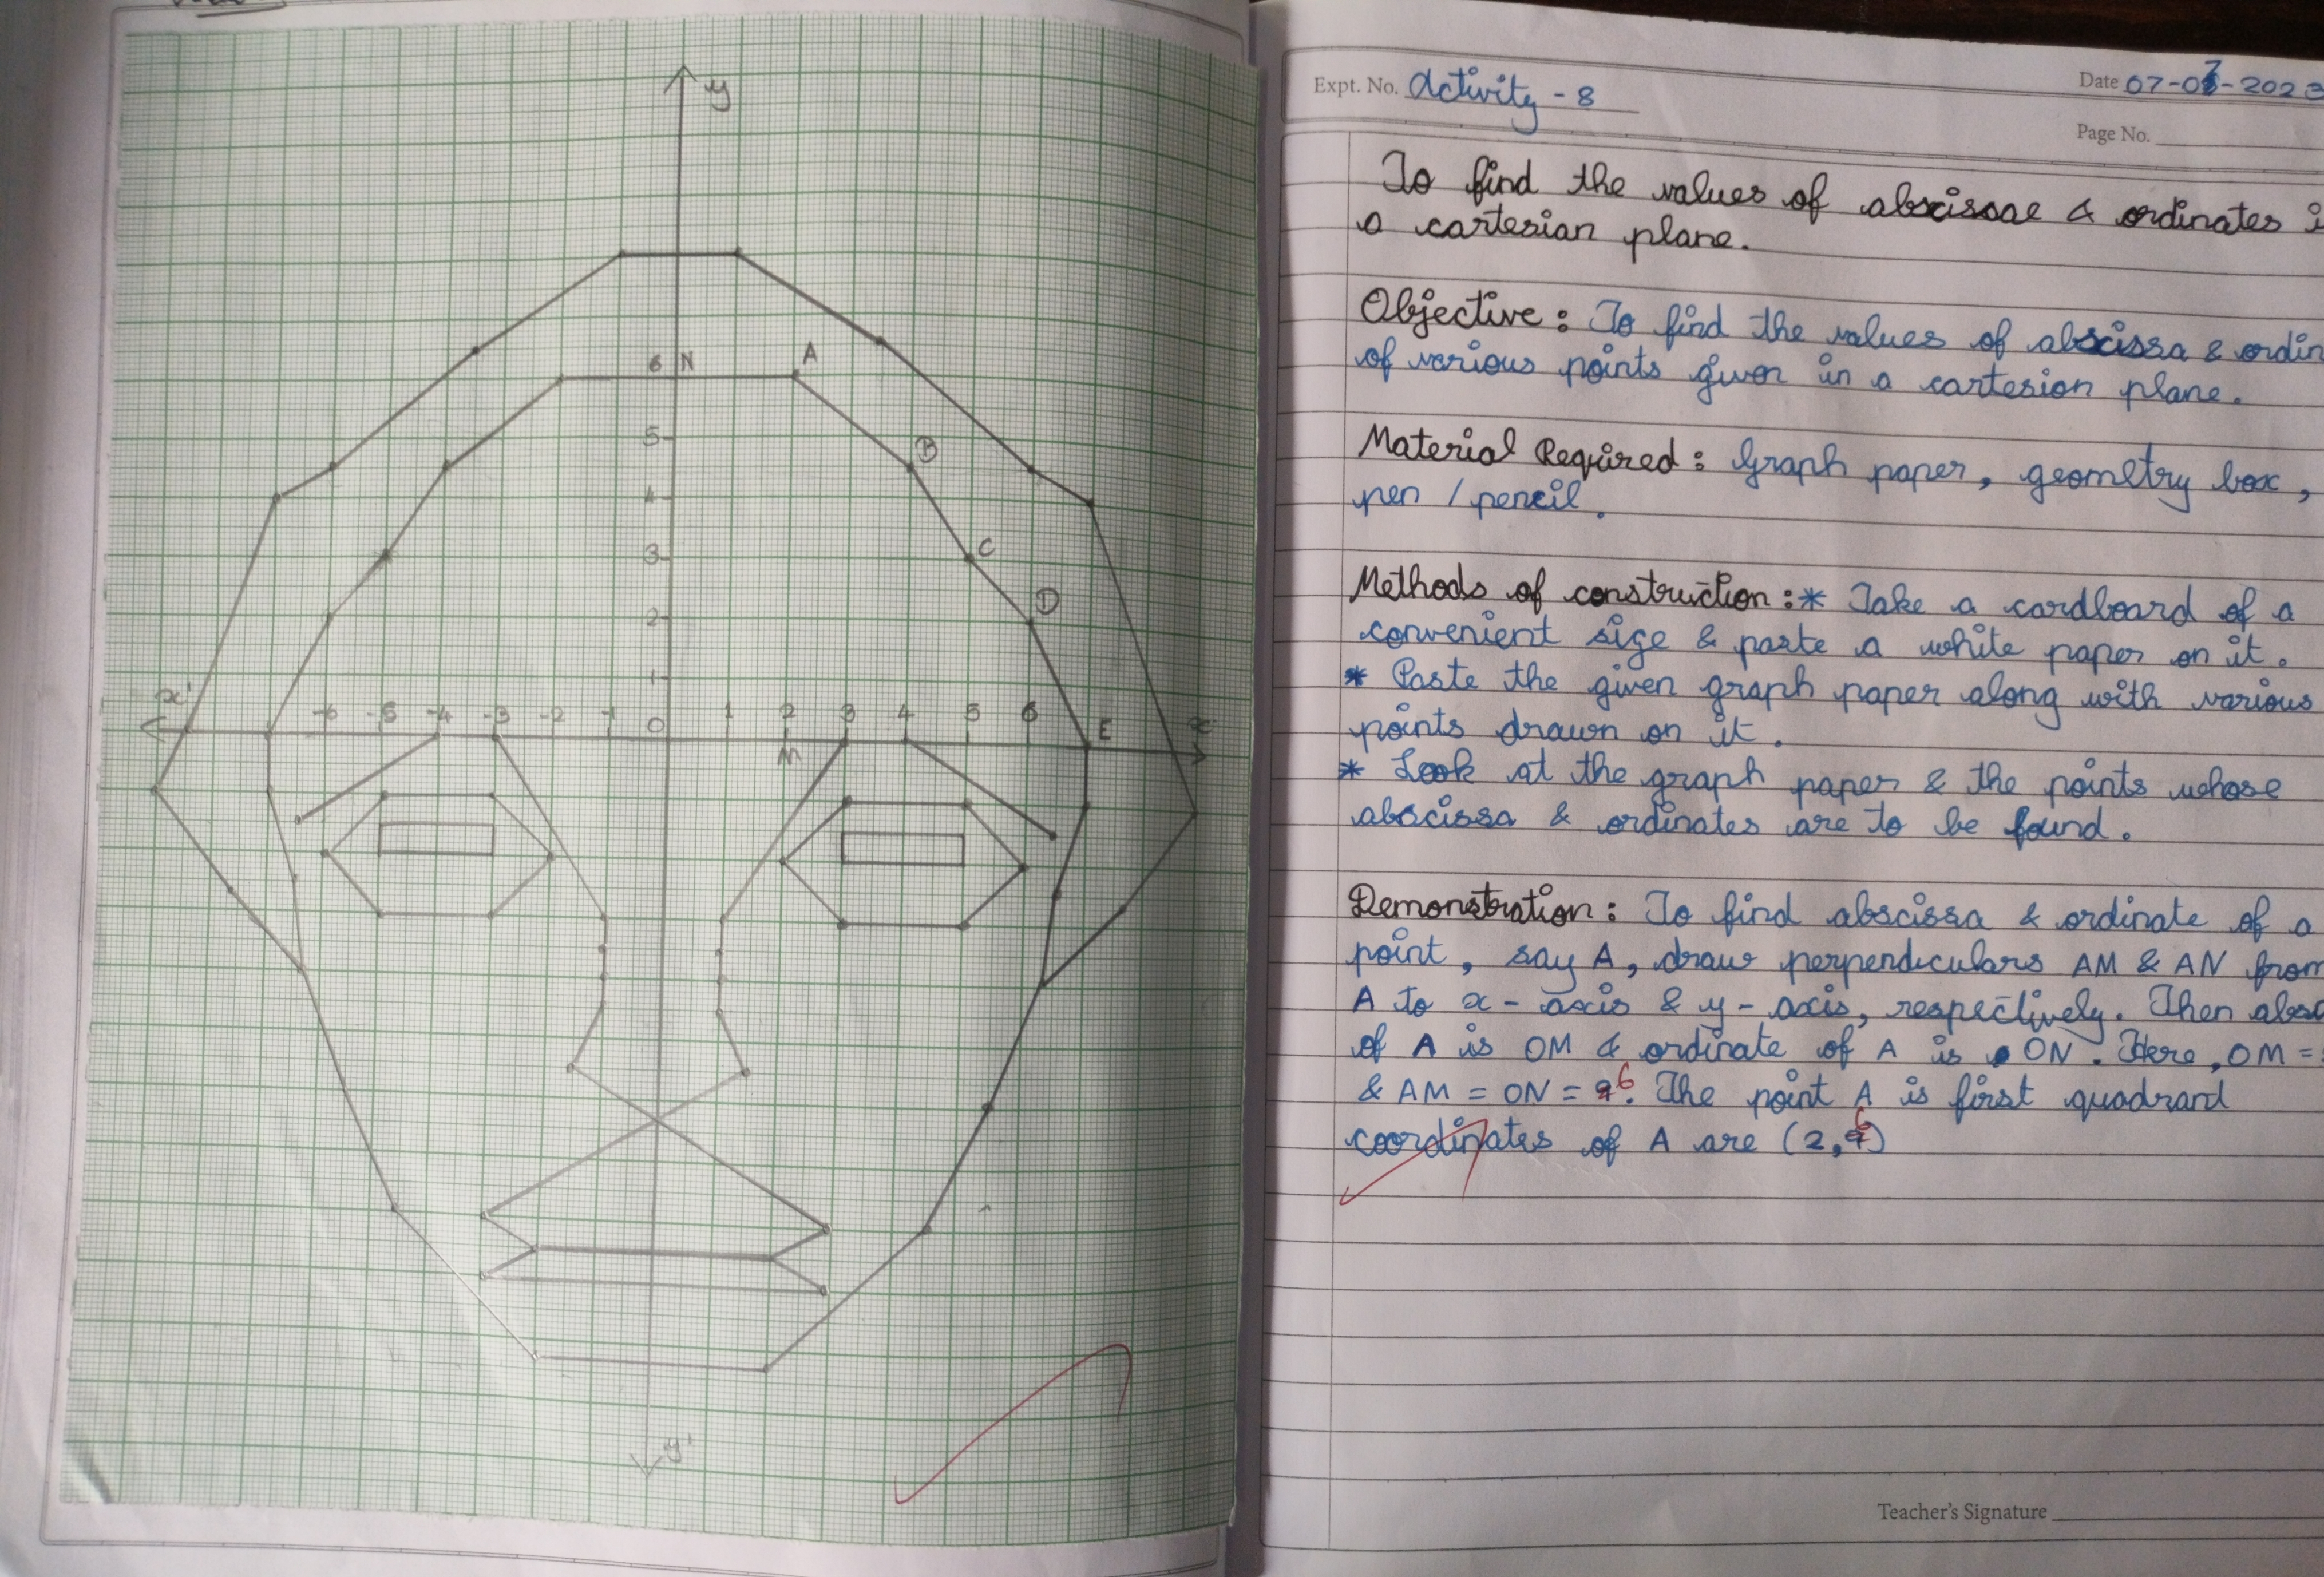 y
N
6
A
B
5
4
C
3
D
2
1
x'
-6 -5 -4 -3 -2 -1 0 1 2 3 4 5 6 E x
M
y'
Expt. No. Activity - 8
Date 07-07-202
Page No.
To find the values of abscissae & ordinates
a cartesian plane.
Objective : To find the values of abscissa & ordin
of various points given in a cartesion plane.
Material Required : Graph paper, geometry box,
pen / pencil.
Methods of construction :* Take a cardboard of a
convenient size & paste a white paper on it.
* Paste the given graph paper along with various
points drawn on it.
* Look at the graph paper & the points whose
abscissa & ordinates are to be found.
Demonstration : To find abscissa & ordinate of a
point, say A, draw perpendiculars AM & AN from
A to x - axis & y - axis, respectively. Then absc
of A is OM & ordinate of A is ON. Here, OM =
& AM = ON = 6. The point A is first quadrant
coordinates of A are (2,6)
Teacher's Signature